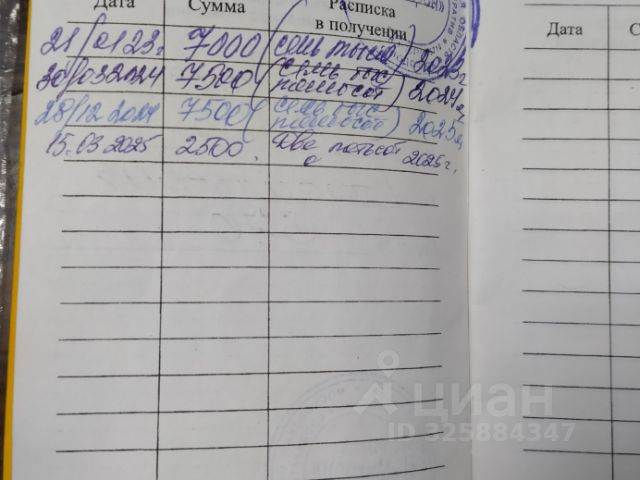 Дата Сумма Расписка
в получении
21/01 23г. 7000 (семь тысяч) 2023г
30/03 2024 7500 (семь тыс
пятьсот) 2024г.
28/12 2024 7500 (семь тыс
пятьсот) 2025г.
15.03 2025 2500. Две пятьсот
2025г.
Дата С
циан
ID 325884347